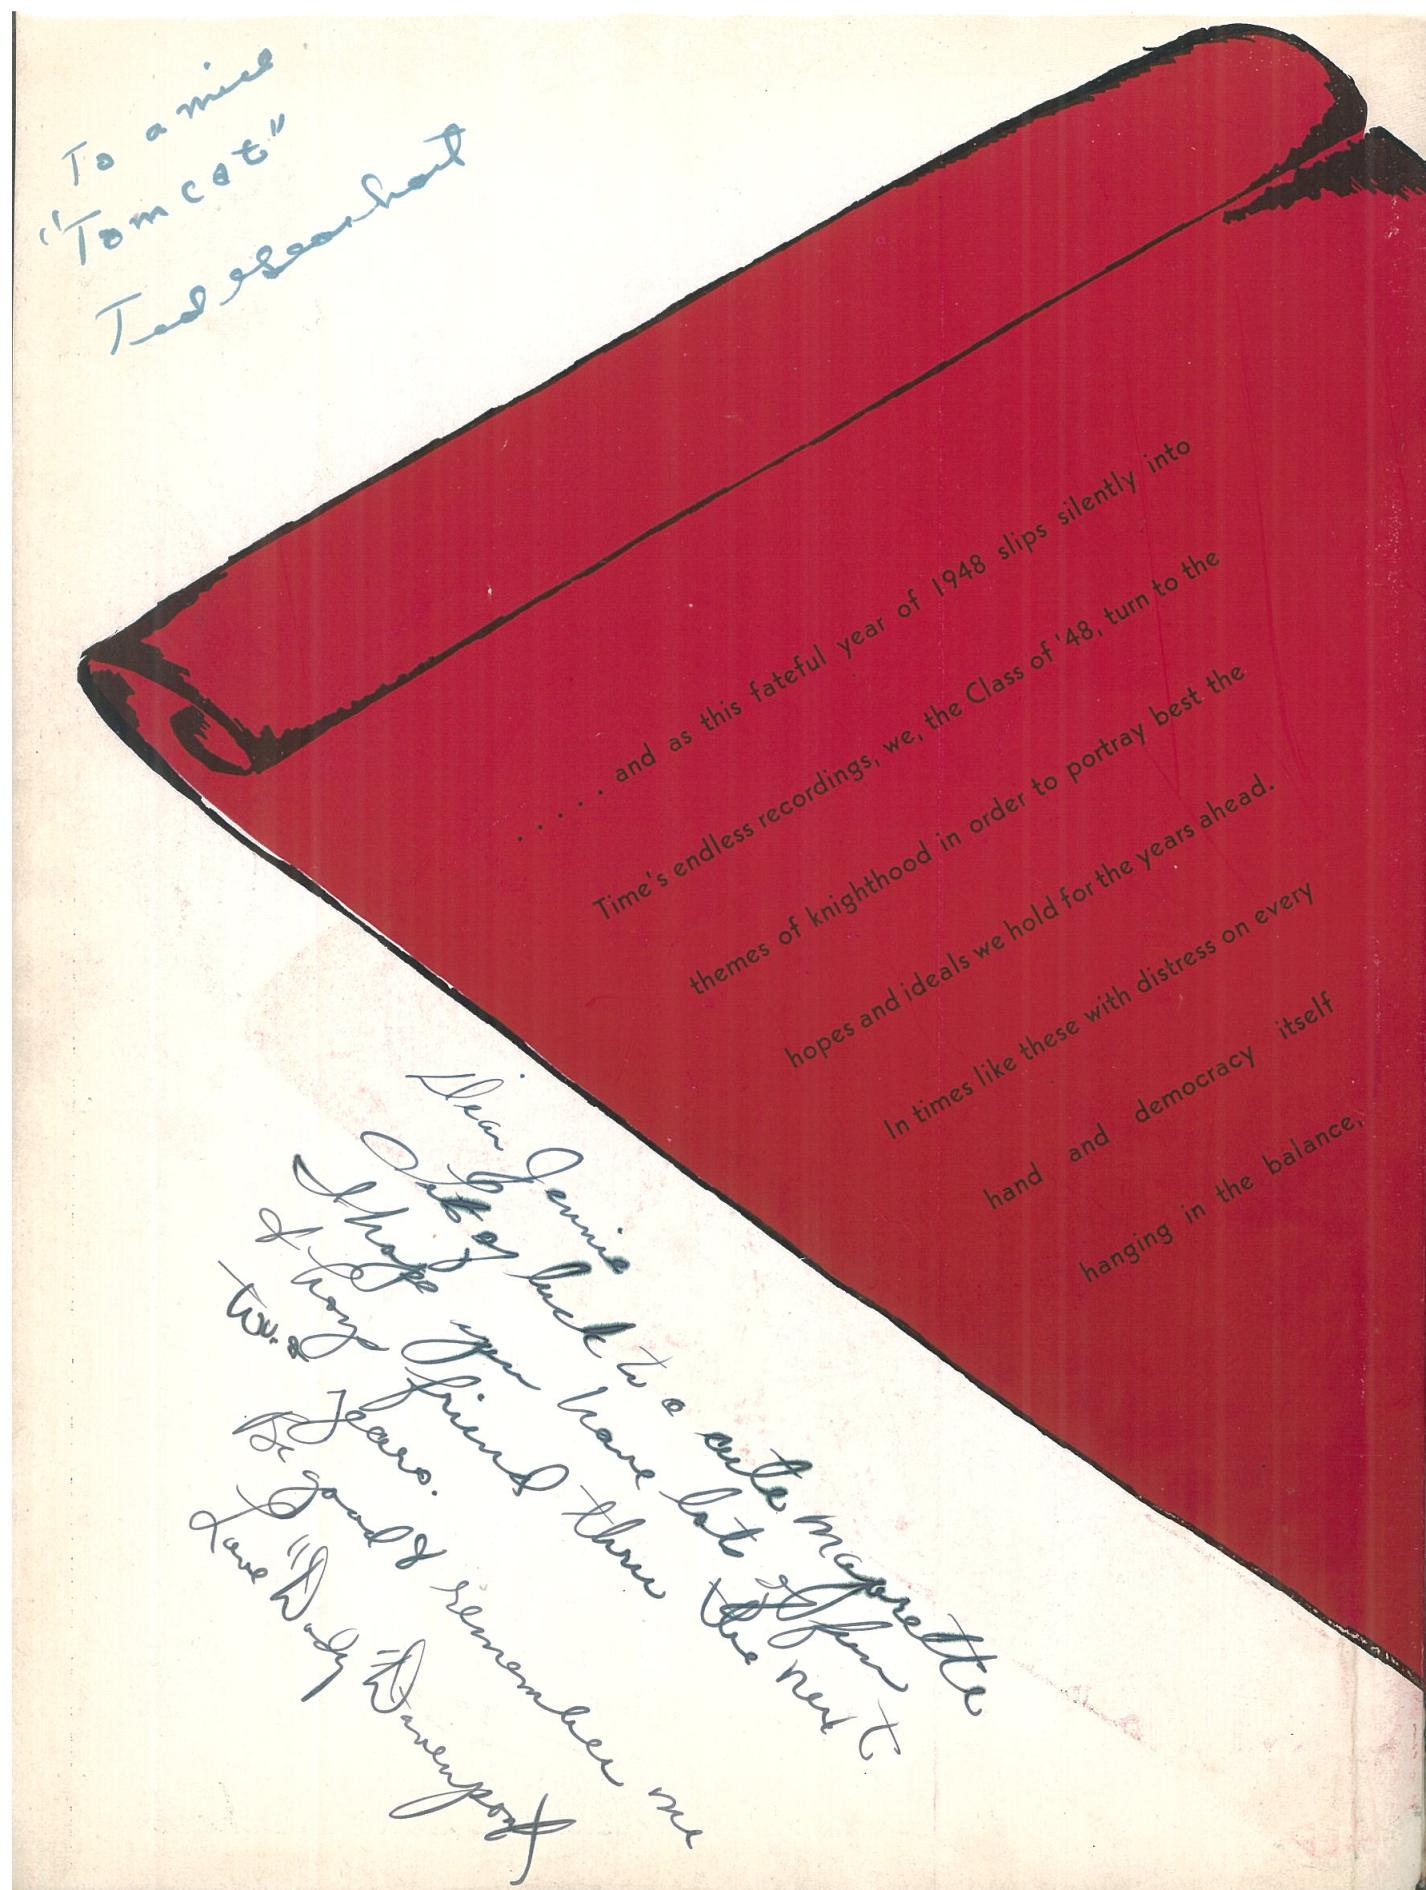 To a nice
"Tom cat"
Ted Gearhart
. . . . . and as this fateful year of 1948 slips silently into
Time's endless recordings, we, the Class of '48, turn to the
themes of knighthood in order to portray best the
hopes and ideals we hold for the years ahead.
In times like these with distress on every
hand and democracy itself
hanging in the balance,
Dear Jennie
Lots of luck to a cute majorette
I hope you have lots of fun
& boys friend thru the next
two years.
Be good & remember me
Love "Dody" Davenport